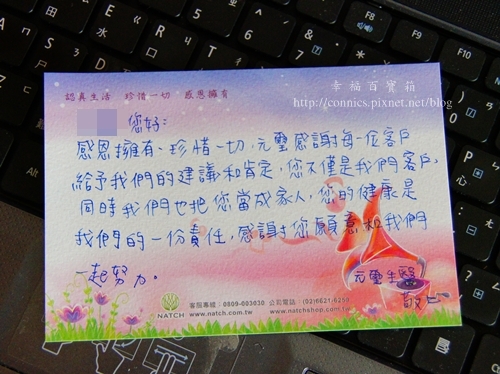 幸福百寶箱
http://connics.pixnet.net/blog
認真生活 珍惜一切 感恩擁有
您好:
感恩擁有、珍惜一切,元璽感謝每一位客戶
給予我們的建議和肯定,您不僅是我們客戶,
同時我們也把您當成家人,您的健康是
我們的一份責任,感謝您願意和我們
一起努力。
元璽生醫
敬上
NATCH
客服專線：0809-003030 公司電話：(02)6621-6258
www.natch.com.tw www.natchshop.com.tw